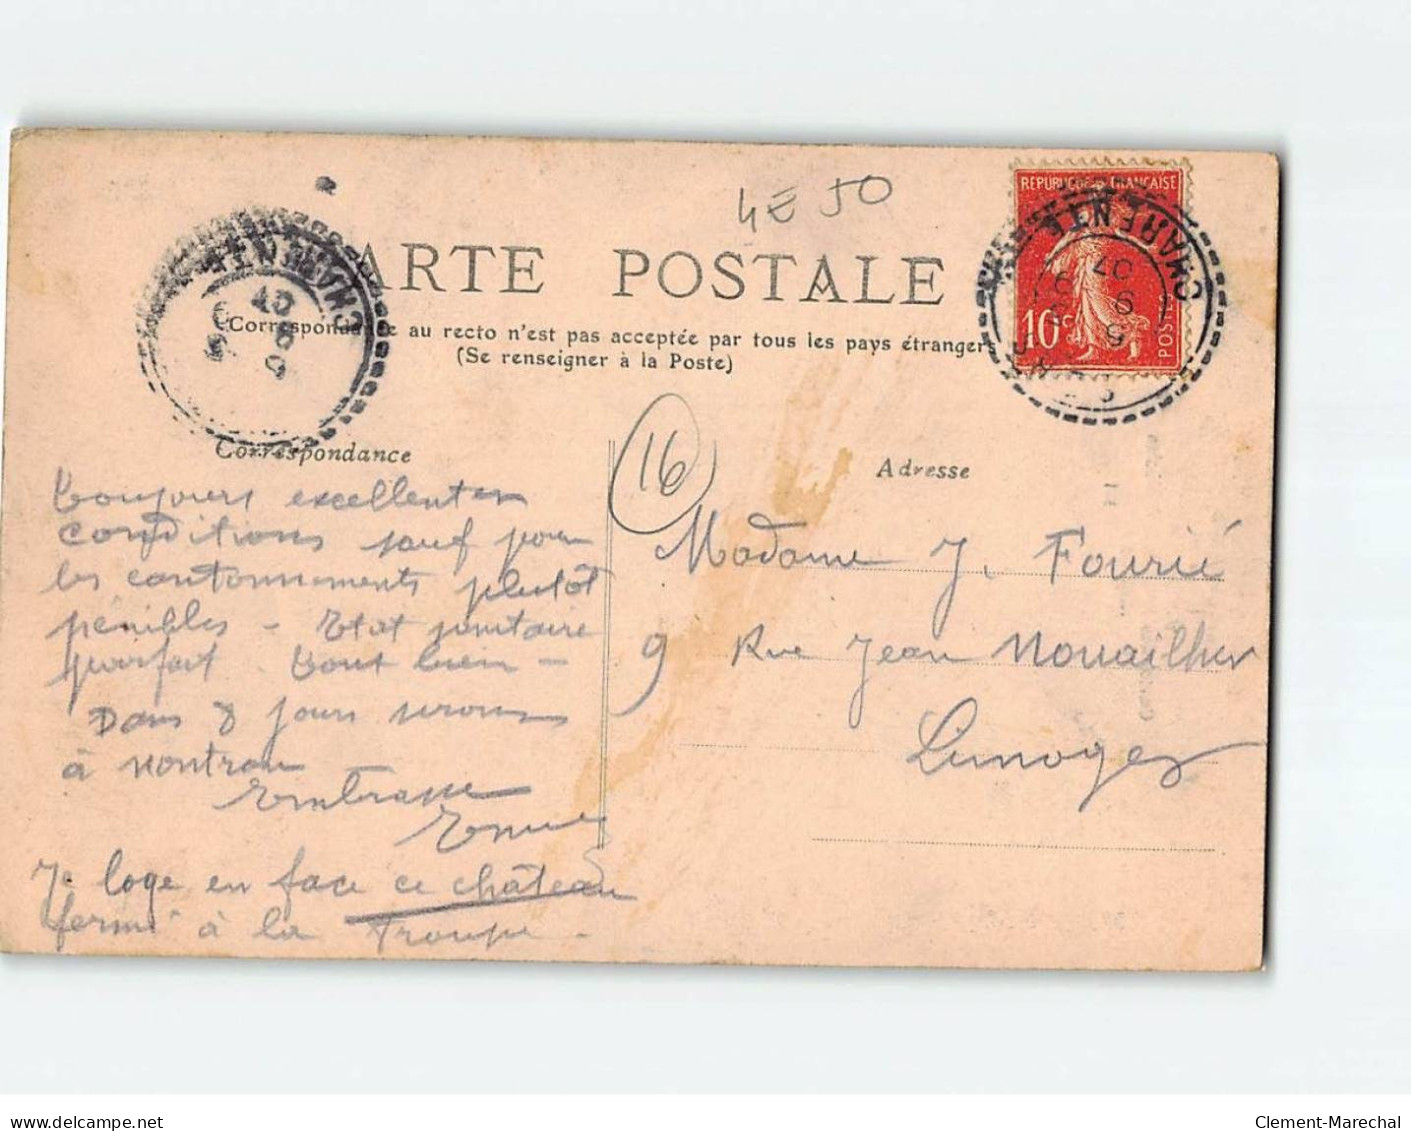 4E50
CARTE POSTALE
Correspondance au recto n'est pas acceptée par tous les pays étrangers
(Se renseigner à la Poste)
RÉPUBLIQUE FRANÇAISE
10c
POSTES
CHARENTE
5
9
07
CHARENTE
07
Correspondance
16
Adresse
Toujours excellentes
conditions sauf pour
les cantonnements plutôt
pénibles - Etat sanitaire
parfait Tout bien -
Dans 8 jours serons
à Nontron
Embrasse
Je loge en face ce château
fermé à la Troupe -
Madame J. Fourié
9 Rue Jean Nouailher
Limoges
www.delcampe.net
Clement-Marechal